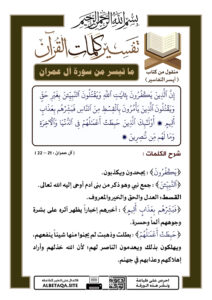 بسم الله الرحمن الرحيم
تفسير كلمات القرآن
منقول من كتاب
( أيسر التفاسير )
ما تيسر من سورة آل عمران
إِنَّ الَّذِينَ يَكْفُرُونَ بِآيَاتِ اللَّهِ وَيَقْتُلُونَ النَّبِيِّينَ بِغَيْرِ حَقٍّ
وَيَقْتُلُونَ الَّذِينَ يَأْمُرُونَ بِالْقِسْطِ مِنَ النَّاسِ فَبَشِّرْهُم بِعَذَابٍ
أَلِيمٍ أُولَٰئِكَ الَّذِينَ حَبِطَتْ أَعْمَالُهُمْ فِي الدُّنْيَا وَالْآخِرَةِ
وَمَا لَهُم مِّن نَّاصِرِينَ
( آل عمران : 21 - 22 )
شرح الكلمات :
﴿يَكْفُرُونَ﴾ : يجحدون ويكذبون.
﴿النَّبِيِّينَ﴾ : جمع نبي وهو ذكر من بنى آدم أوحى إليه الله تعالى.
القسط : العدل والحق والخير والمعروف.
﴿فَبَشِّرْهُم بِعَذَابٍ أَلِيمٍ﴾ : أخبرهم إخباراً يظهر أثره على بشرة
وجوههم ألماً وحسرة.
﴿حَبِطَتْ أَعْمَالُهُمْ﴾ : بطلت وذهبت لم يجنوا منها شيئاً ينفعهم،
ويهلكون بذلك ويعدمون الناصر لهم؛ لأن الله خذلهم وأراد
إهلاكهم وعذابهم في جهنم.
ALBETAQA.SITE
احرص على طباعة
ونشر هذه البطاقة